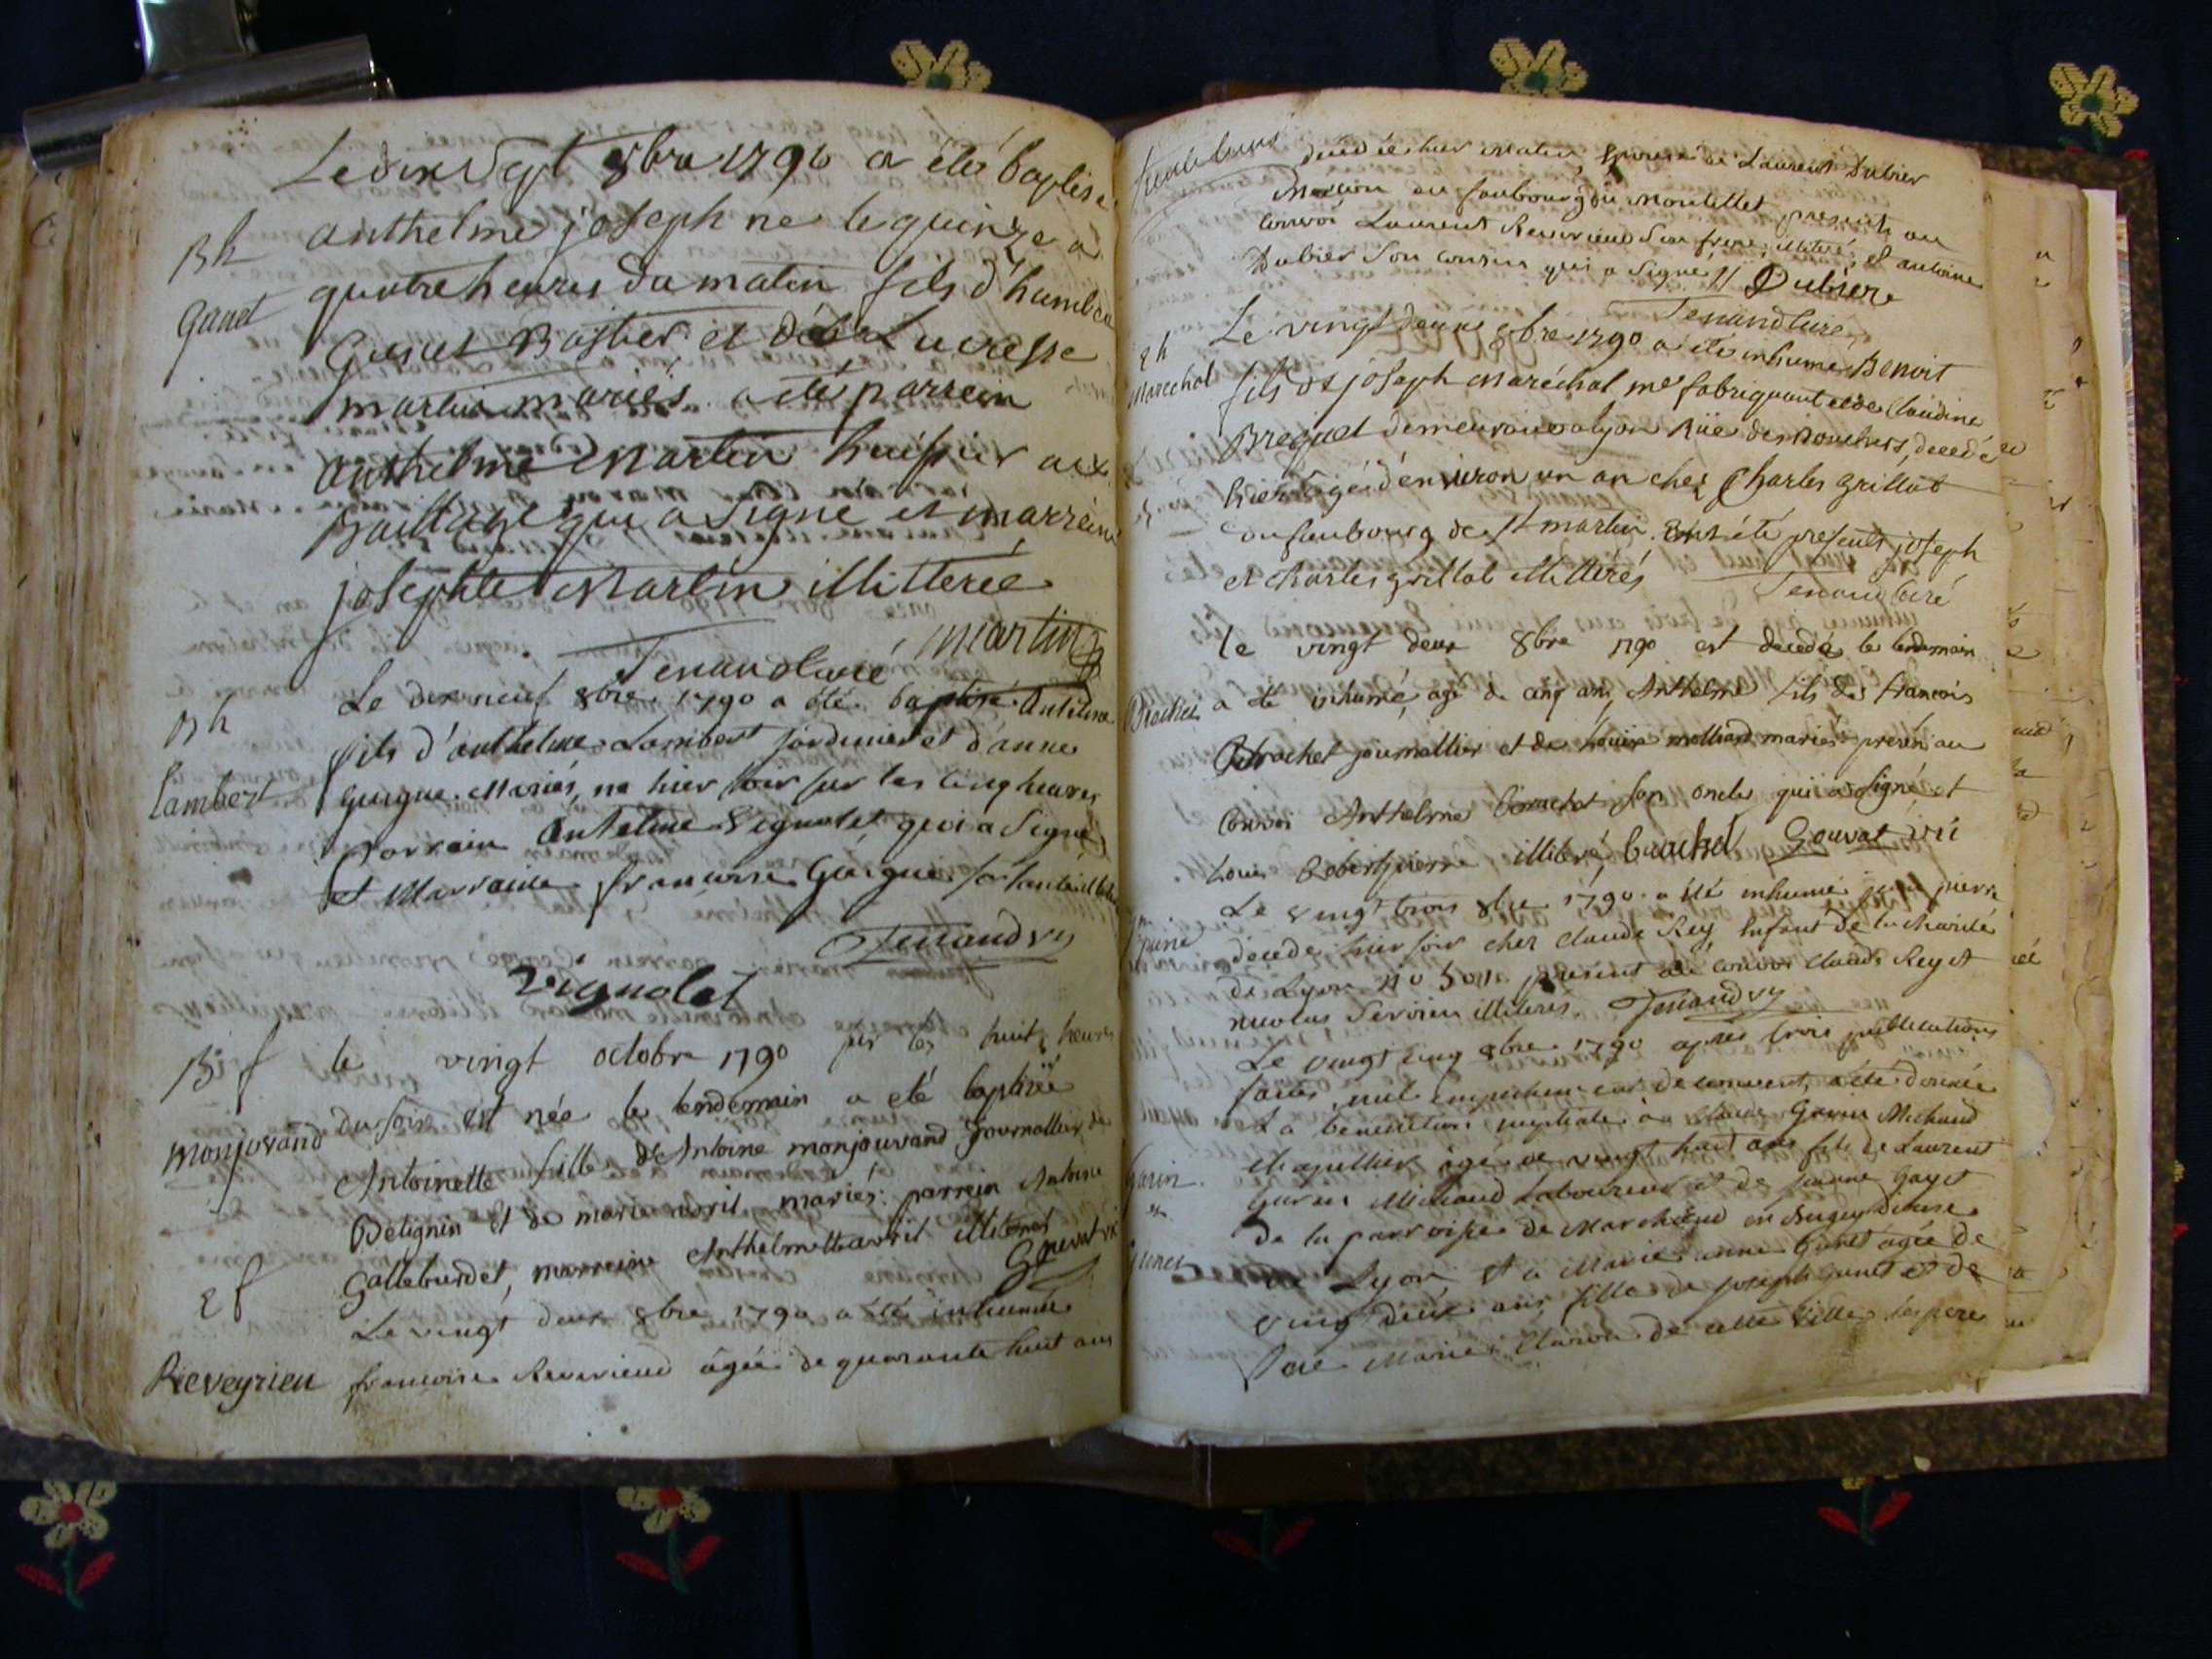 Le dix Sept 8bre 1790 a été baptisé
Bh
anthelme joseph ne le quinze a
quatre heures du matin fils d'humbe
ganet
Bastier et
martin mariés a été parrein
anthelme Martin huissier au
Baillage qui a Signé et marreine
josephte Martin illitterée
martin
Tenand curé
Bh
Le dix neuf 8bre 1790 a été baptisé Antelme
fils d'anthelme Lambert jardinier et d'anne
Lambert
Guigue mariés, né hier soir sur les cinq heures
Parrain Antelme Vignolet qui a Signé
et Marraine francoise Guigue sa tante
Tenand vic
Vignolet
Bf
le vingt octobre 1790 sur les huit heures
monjovand
du soir est née le lendemain a eté baptisée
Antoinette fille d'Antoine monjouvand journallier de
et de marie avril mariés. parrein Antoine
Galleburdet, marreine Anthelmette avril illiteres
2f
Le vingt deux 8bre 1790 a été inhumée
Reveyrieu
francoise Reverieud âgée de quarante huit ans
décédée hier matin, Epouse de Laurent Dubier
Macon au faubourg du present au
convoi Laurent Reverieud Son frere, illiteré, et antoine
Dubier Son cousin qui a Signé // Dubier
Tenand Cure
2h
Le vingt deux 8bre 1790 a été inhume Benoit
Marechal
fils de joseph Maréchal me fabriquant et de Claudine
Breguet demeurant a lyon Rüe des Bouchers, decedé
hier agé d'environ un an chez Charles grillat
au faubourg de St martin. ont été presents joseph
et charles grillat illitérés Tenand Curé
le vingt deux 8bre 1790 est decedé le lendemain
Brachet
a été inhumé, agé de cinq ans, Anthelme fils de francois
Brachet journallier et de louise molliard mariés present au
Convoi Anthelme brachet son oncle qui a signé et
Louis Robertpierre illiteré, brachet Gouvat vic
Le vingt trois 8bre 1790 a été inhumé pierre
decedé hier soir chez claude Rey Enfant de la charité
de Lyon no present au convoi claude Rey et
nicolas Servieu illiterés. Tenand vic
Le vingt cinq 8bre 1790 apres trois publications
faites, nul empechement decouvert, a été donnée
La benediction nuptiale a claude Garin Michaud
Chapellier âgé de vingt huit ans fils de Laurent
Garin
Garin Michaud Laboureur et de jeanne Gayet
et
de la parroisse de Marchand en Bugey diocese
de Lyon, et a Marie anne Ganet âgée de
vingt deux ans fille de joseph ganet et de
Marie Clairon de cette Ville, les pere